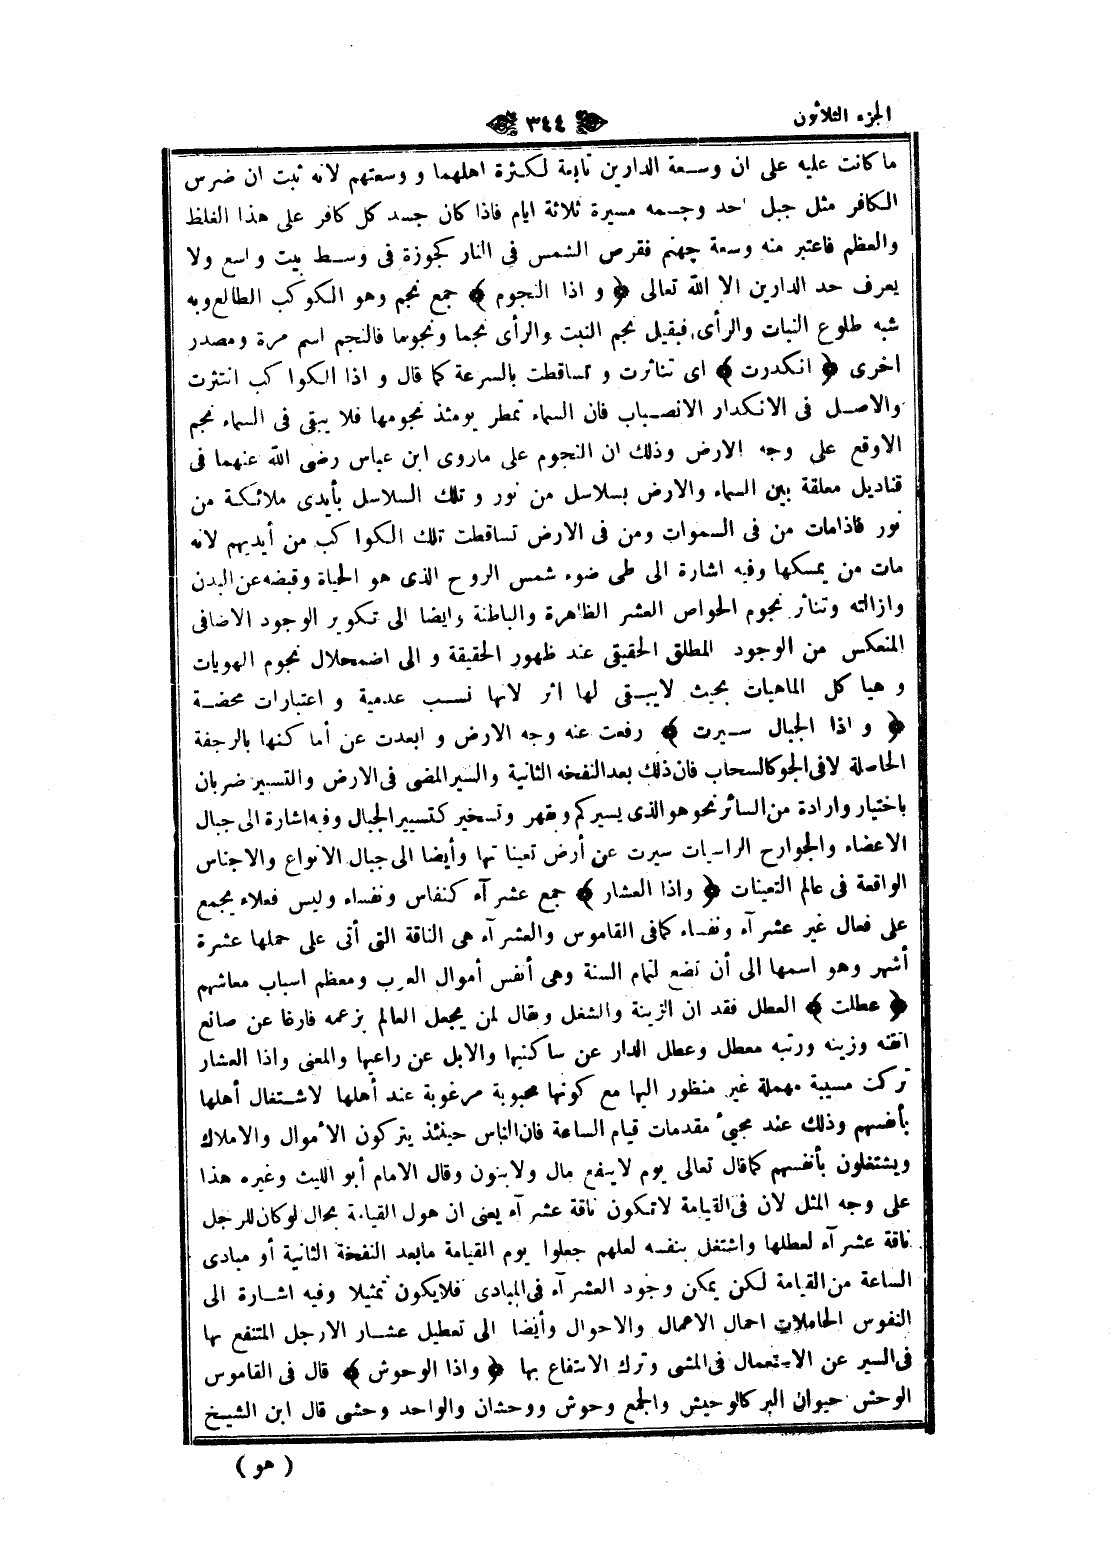 الجزء الثلاثون
٣٤٤
ما كانت عليه على ان وسعة الدارين تابعة لكثرة اهلهما و وسعتهم لانه ثبت ان ضرس
الكافر مثل جبل احد وجسمه مسيرة ثلاثة ايام فاذا كان جسد كل كافر على هذا الغلظ
والعظم فاعتبر منه وسعة جهنم فقرص الشمس فى النار كجوزة فى وسط بيت واسع ولا
يعرف حد الدارين الا الله تعالى ﴿ و اذا النجوم ﴾ جمع نجم وهو الكوكب الطالع وبه
شبه طلوع النبات والرأى فيقيل نجم النبت والرأى نجما ونجوما فالنجم اسم مرة ومصدر
اخرى ﴿ انكدرت ﴾ اى تناثرت و تساقطت بالسرعة كما قال و اذا الكواكب انتثرت
والاصل فى الانكدار الانصباب فان السماء تمطر يومئذ نجومها فلا يبقى فى السماء نجم
الاوقع على وجه الارض وذلك ان النجوم على ماروى ابن عباس رضى الله عنهما فى
قناديل معلقة بين السماء والارض بسلاسل من نور و تلك السلاسل بأيدى ملائكة من
نور فاذامات من فى السموات ومن فى الارض تساقطت تلك الكواكب من أيديهم لانه
مات من يمسكها وفيه اشارة الى طى ضوء شمس الروح الذى هو الحياة وقبضه عن البدن
وازالته وتناثر نجوم الحواص العشر الظاهرة والباطنة وايضا الى تكوير الوجود الاضافى
المنعكس من الوجود المطلق الحقيقى عند ظهور الحقيقة و الى اضمحلال نجوم الهويات
و هياكل الماهيات بحيث لايبقى لها اثر لانها نسب عدمية و اعتبارات محضة
﴿ و اذا الجبال سيرت ﴾ رفعت عنه وجه الارض و ابعدت عن اماكنها بالرجفة
الحاصلة لافى الجو كالسحاب فان ذلك بعد النفخه الثانية والسير المضى فى الارض والتسيير ضربان
باختيار وارادة من السائر نحو هو الذى يسيركم وبقهر وتسخير كتسيير الجبال وفيه اشارة الى جبال
الاعضاء والجوارح الراسيات سيرت عن أرض تعيناتها وأيضا الى جبال الانواع والاجناس
الواقعة فى عالم التعينات ﴿ واذا العشار ﴾ جمع عشرآء كنفاس ونفساء وليس فعلاء يجمع
على فعال غير عشرآء ونفساء كما فى القاموس والعشرآء هى الناقة التى أتى على حملها عشرة
أشهر وهو اسمها الى أن تضع لتمام السنة وهى أنفس أموال العرب ومعظم اسباب معاشهم
﴿ عطلت ﴾ العطل فقد ان الزينة والشغل ويقال لمن يجعل العالم بزعمه فارغا عن صانع
اتقنه وزينه ورتبه معطل وعطل الدار عن ساكنيها والابل عن راعيها والمعنى واذا العشار
تركت مسيبة مهملة غير منظور اليها مع كونها محبوبة مرغوبة عند أهلها لاشتغال أهلها
بأنفسهم وذلك عند مجيئ مقدمات قيام الساعة فان الناس حينئذ يتركون الأموال والاملاك
ويشتغلون بأنفسهم كما قال تعالى يوم لاينفع مال ولابنون وقال الامام أبو الليث وغيره هذا
على وجه المثل لان فى القيامة لاتكون ناقة عشرآء يعنى ان هول القيامة بحال لو كان للرجل
ناقة عشرآء لعطلها واشتغل بنفسه لعلهم جعلوا يوم القيامة مابعد النفخة الثانية أو مبادى
الساعة من القيامة لكن يمكن وجود العشرآء فى المبادى فلايكون تمثيلا وفيه اشارة الى
النفوس الحاملات احمال الاعمال والاحوال وأيضا الى تعطيل عشار الارجل المنتفع بها
فى السير عن الاستعمال فى المشى وترك الانتفاع بها ﴿ واذا الوحوش ﴾ قال فى القاموس
الوحش حيوان البر كالوحيش والجمع وحوش ووحشان والواحد وحشى قال ابن الشيخ
( هو )